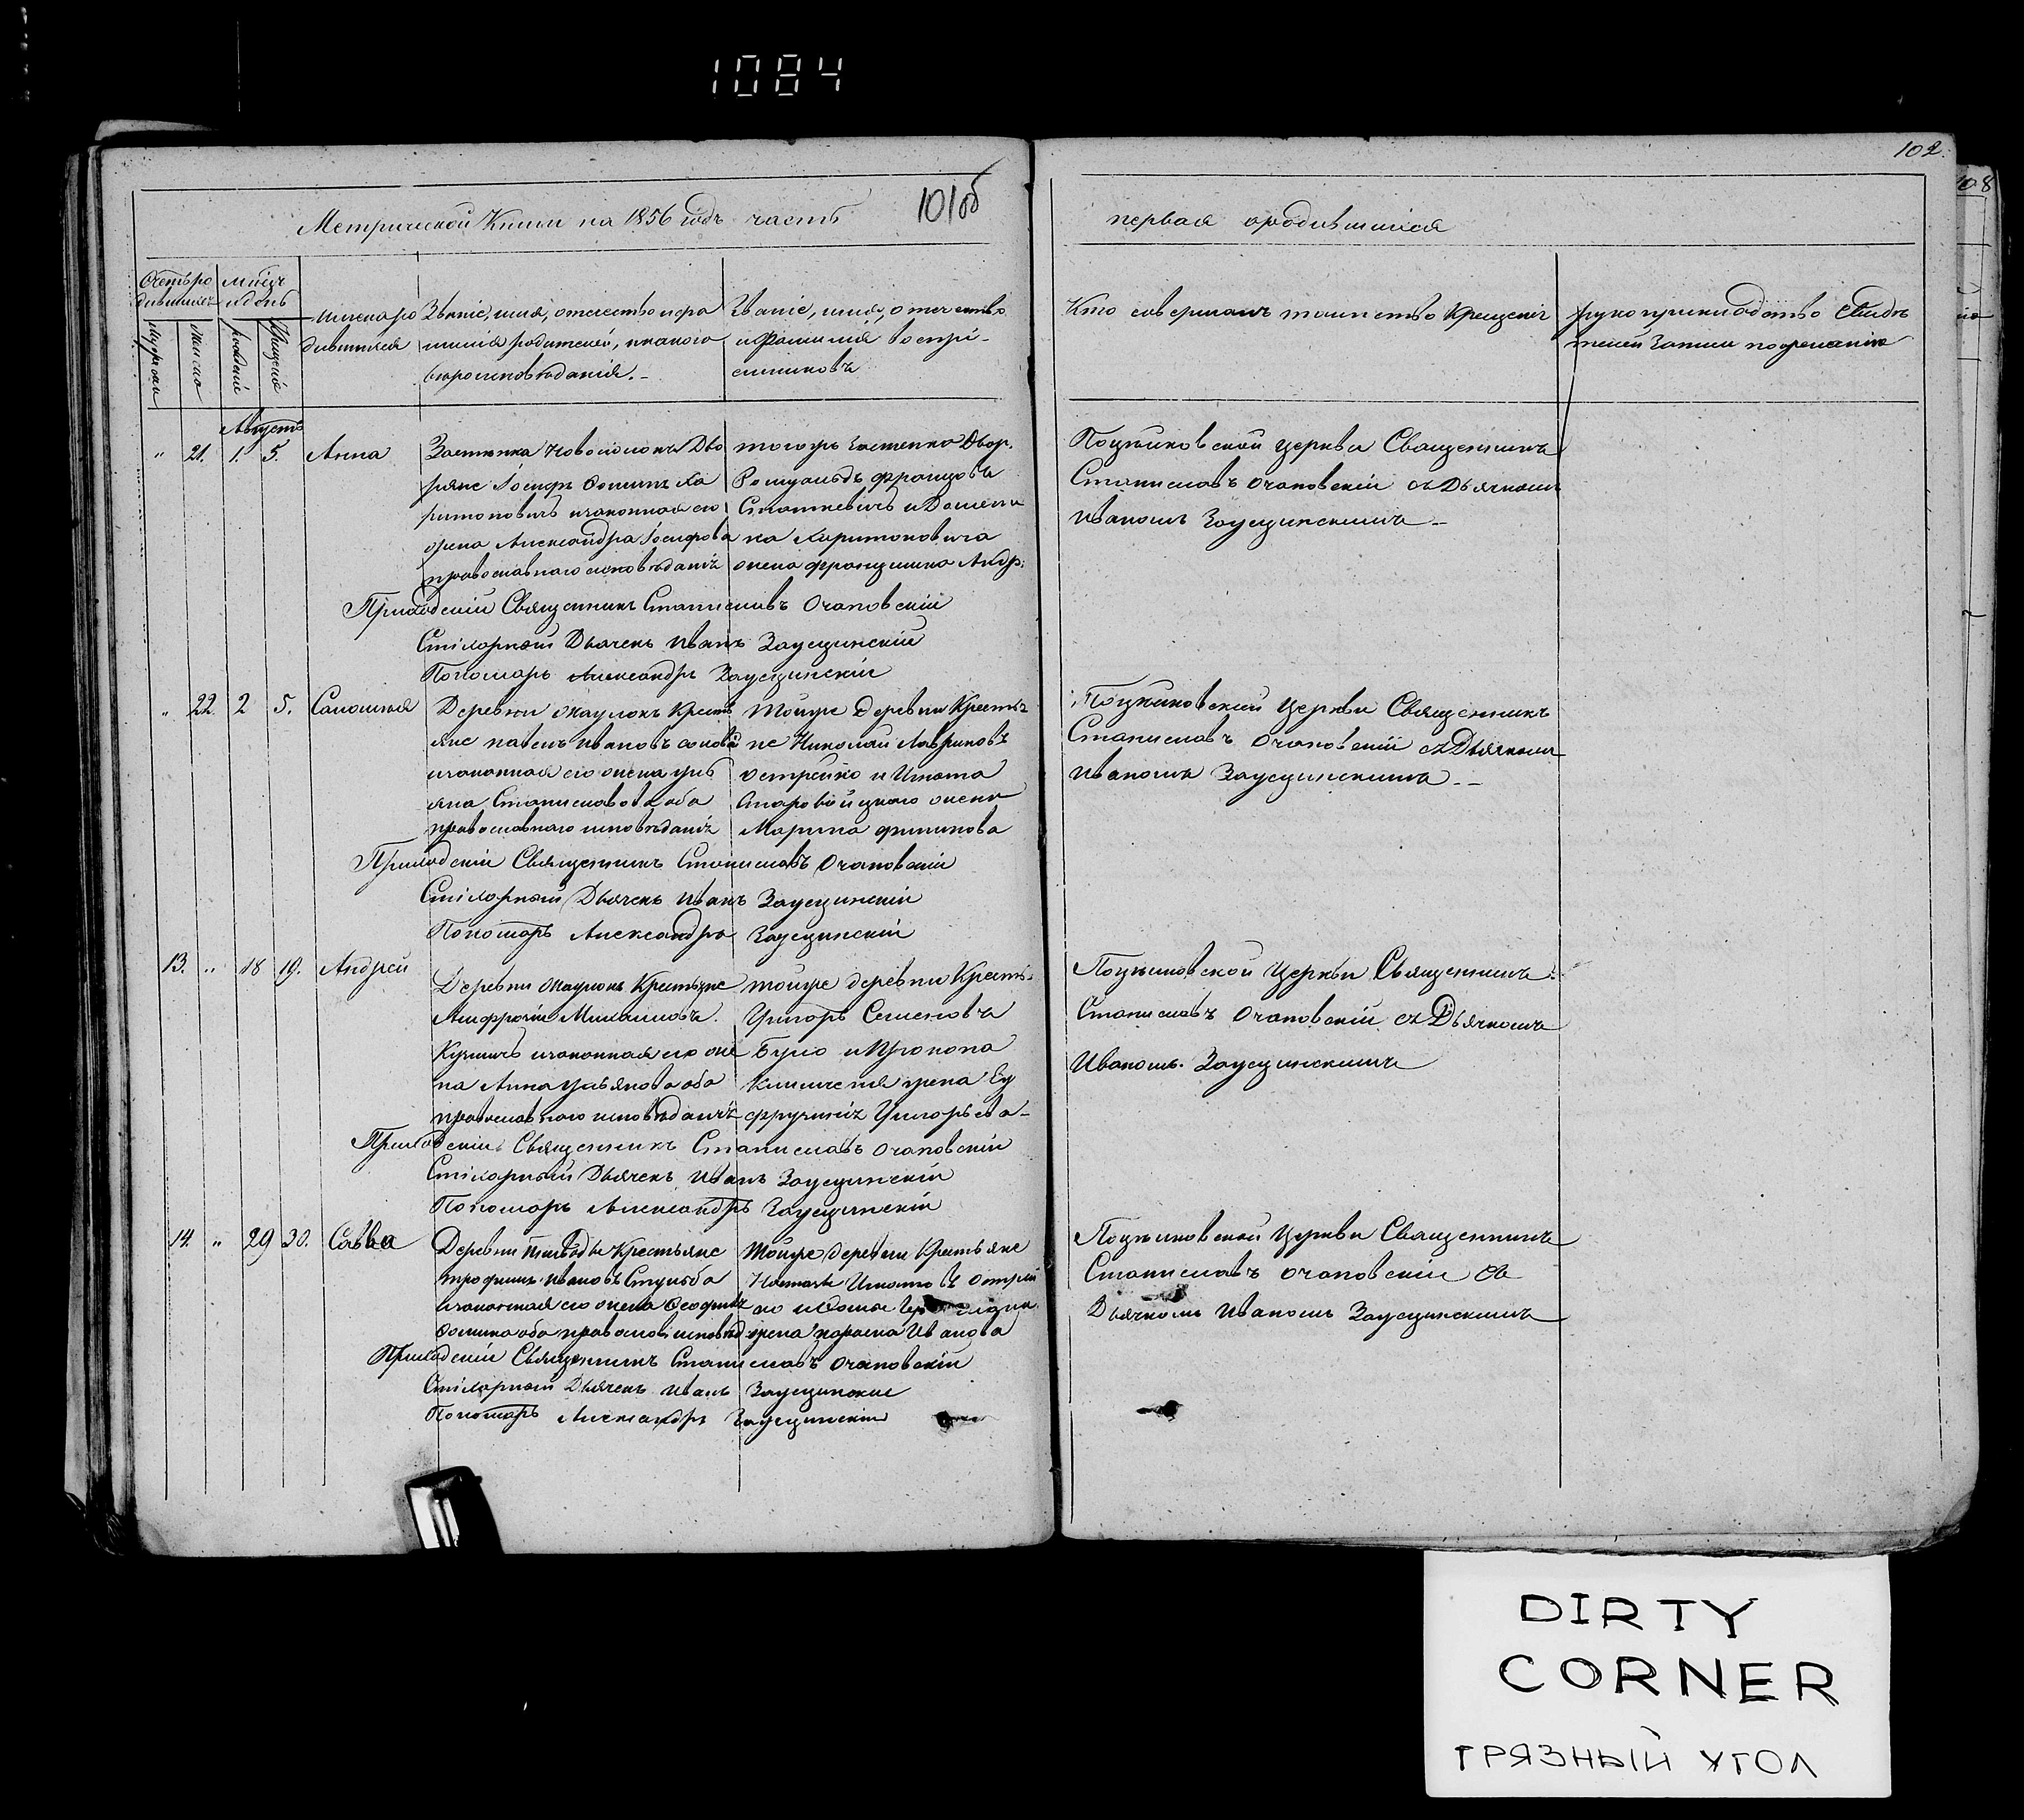 1084
102.
108
101об
Метрической Книги на 1856 годъ часть
первая о родившихся
Счетъ ро
дившихся
Мѣсяц
и день
Мужеска
Женска
рожденія
Крещенія
Имена ро
дившихся
Званіе, имя, отчество и фа
милія родителей, и какого
вѣроисповѣданія.
Званіе, имя, отчество
и Фамилія воспрі-
емниковъ
Кто совершалъ таинство Крещенія
рукоприкладство свидѣ
телей записи по желанію
Августъ
" 21. 1. 5. Анна
Застѣнка Дво
ряне Іосифъ Ха
ритоновичъ и законная его
жена Александра Іосифова
православнаго исповѣданія
тогожъ застенка Двор.
Ромуальдъ Францовъ
Станкевичъ и Домени
ка Харитоновича
жена Францишка Андр.
Поцѣйковской церкви Священникъ
Станиславъ Очаповскій съ Дьячкомъ
Иваномъ Заусцинскимъ
Приходскій Священникъ Станиславъ Очаповскій
Стіхарный Дьячекъ Иванъ Заусцинскій
Пономарь Александръ Заусцинскій
" 22. 2 5. Саломія
Деревни Крестъ
яне Иванов
и законная его жена Уль
яна Станиславова оба
православнаго исповѣданія
Тойже деревни Крестья
не Николай Лавриновъ
Острейко и Игната
Старовойцкаго жена
Марина Филипова
Поцейковской церкви Священникъ
Станиславъ Очаповскій съ Дьячкомъ
Иваномъ Заусцинскимъ
Приходскій Священникъ Станиславъ Очаповскій
Стіхарный Дьячекъ Иванъ Заусцинскій
Пономарь Александръ Заусцинскій
13. " 18 19. Андрей
Деревни Крестьяне
Михаиловъ
и законная его же
на Анна Ульянова оба
православнаго исповѣданія
тойже деревни Крестья.
Григорь Семеновъ
Було и Прокопа
жена Еу
фрузинія Григорьева
Поцѣйковской Церкви Священникъ
Станиславъ Очаповскій съ Дьячкомъ
Иваномъ Заусцинскимъ
Приходскій Священникъ Станиславъ Очаповскій
Стіхарный Дьячекъ Иванъ Заусцинскій
Пономарь Александръ Заусцинскій
14. " 29 30. Савва
Деревни Крестьяне
Трофимъ Ивановъ
и законная его жена
оба православ. исповѣд.
Тойже деревни Крестьяне
Игнатовъ Острей
ко и Фомы
жена Параска Иванова
Поцѣйковской Церкви Священникъ
Станиславъ Очаповскій съ
Дьячкомъ Иваномъ Заусцинскимъ
Приходскій Священникъ Станиславъ Очаповскій
Стіхарный Дьячекъ Иванъ Заусцинскій
Пономарь Александръ Заусцинскій
DIRTY
CORNER
ГРЯЗНЫЙ УГОЛ